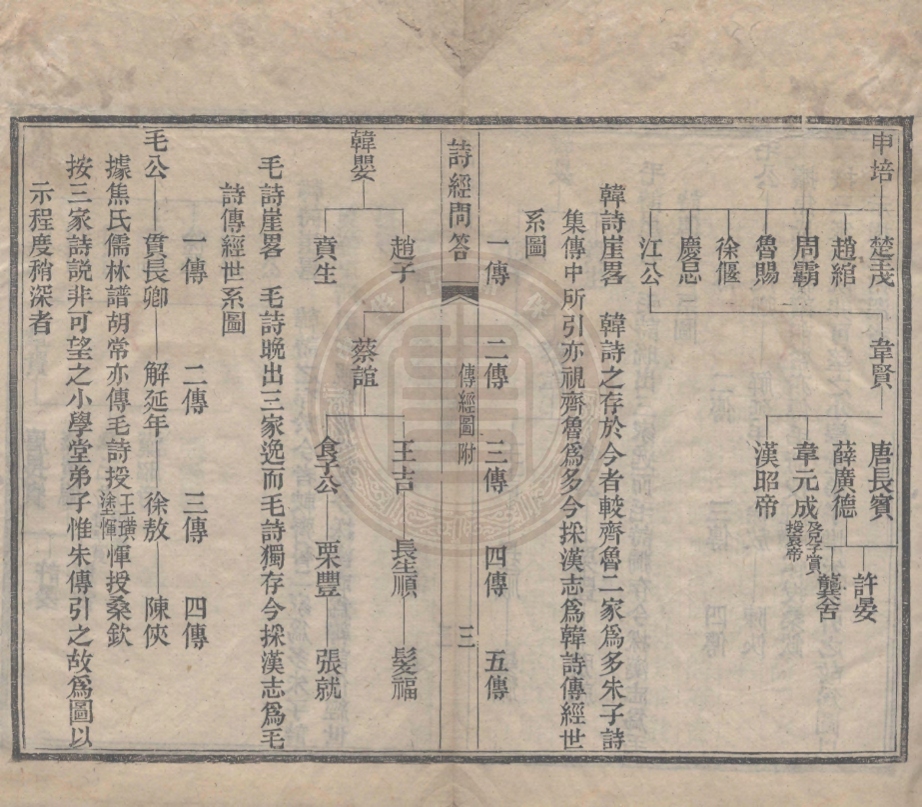 申培
楚茂
趙綰
周霸
魯賜
徐偃
慶忌
江公
韋賢
唐長賓
薛廣德
韋元成 及兄子賞 授哀帝
漢昭帝
許晏
龔舍
韓詩崖畧 韓詩之存於今者較齊魯二家爲多朱子詩
集傳中所引亦視齊魯爲多今採漢志爲韓詩傳經世
系圖
一傳 二傳 三傳 四傳 五傳
詩經問答 傳經圖附 三
韓嬰
趙子 蔡誼 王吉 長生順 髮福
賁生 食子公 栗豐 張就
毛詩崖畧 毛詩晚出三家逸而毛詩獨存今採漢志爲毛
詩傳經世系圖
一傳 二傳 三傳 四傳
毛公 貫長卿 解延年 徐敖 陳俠
據焦氏儒林譜胡常亦傳毛詩授王璜塗惲惲授桑欽
按三家詩說非可望之小學堂弟子惟朱傳引之故爲圖以
示程度稍深者